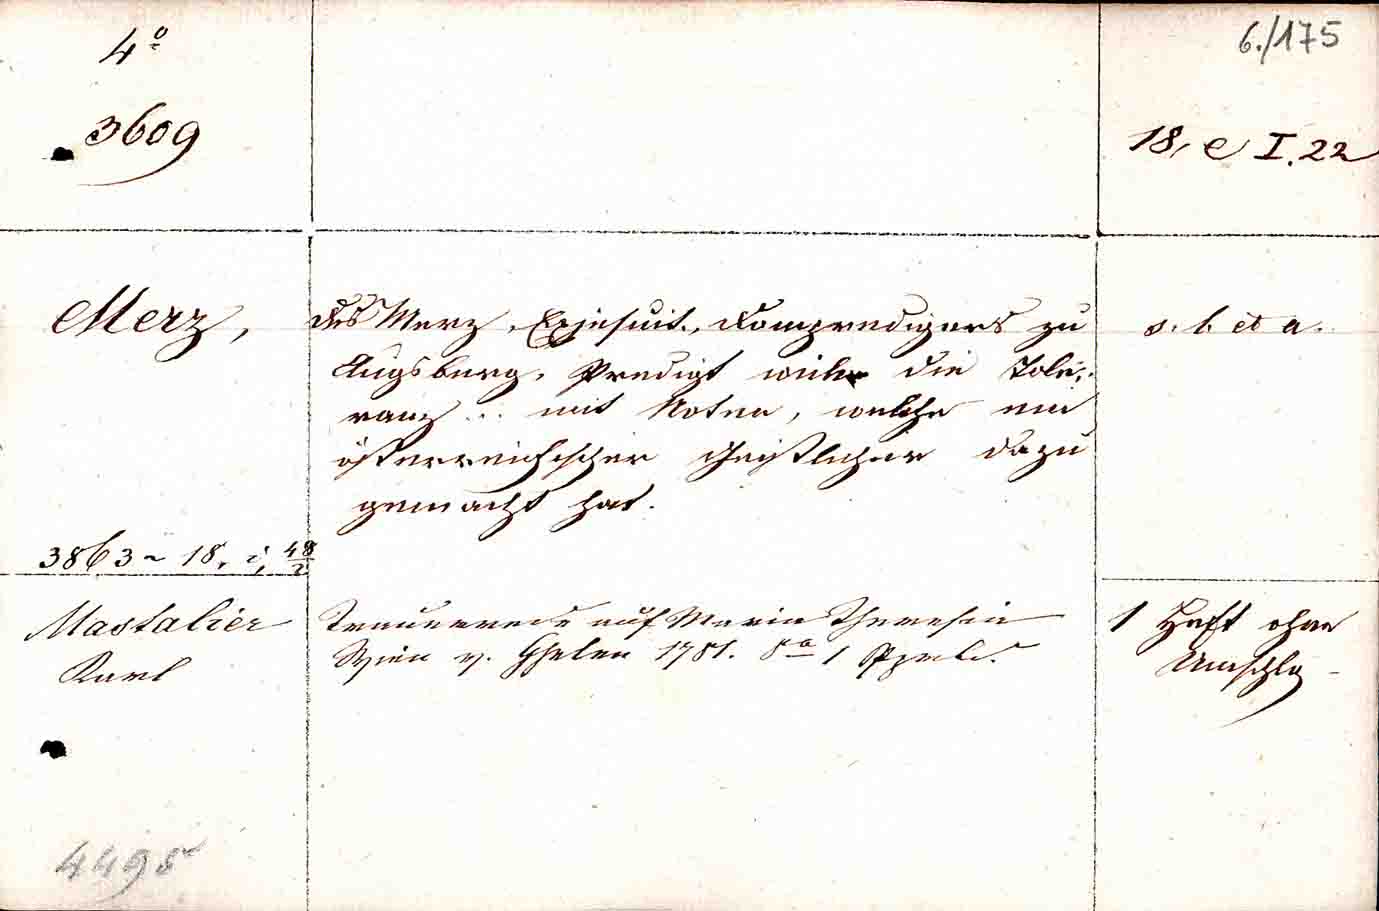 4º
3609
6./175
18, e I. 22
Merz,
des Merz, Exjesuit., Dompredigers zu
Augsburg, Predigt wider die Tole-
ranz ... mit Noten, welche ein
österreichischer Geistlicher dazu
gemacht hat.
s. l. et a.
3863 ~ 18, i, 48/2
Mastalier
Karl
Trauerrede auf Maria Theresia
Wien v. Ghelen 1781. 8º 1 Exple.
1 Heft ohne
Umschlg
4498